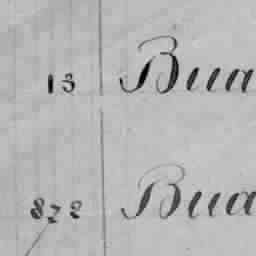 13 Bua
872 Bua